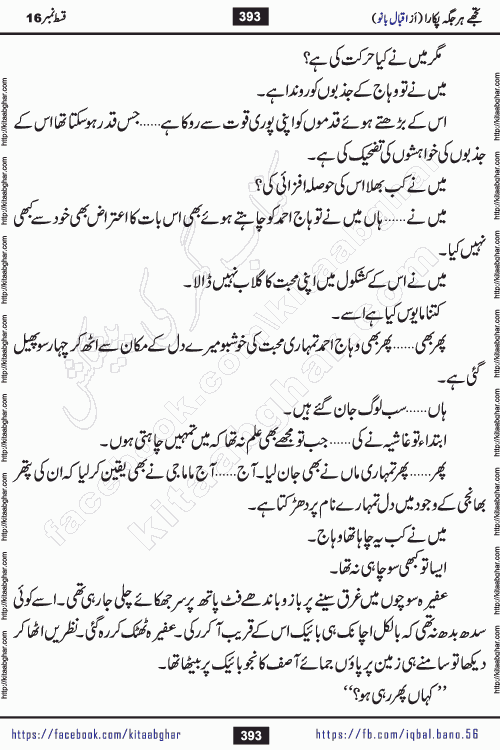 تجھے ہر جگہ پکارا (از اقبال بانو)
393
قسط نمبر 16
مگر میں نے کیا حرکت کی ہے؟
میں نے تو وہاج کے جذبوں کو روندا ہے۔
اس کے بڑھتے ہوئے قدموں کو اپنی پوری قوت سے روکا ہے......جس قدر ہو سکتا تھا اس کے
جذبوں کی خواہشوں کی تضحیک کی ہے۔
میں نے کب بھلا اس کی حوصلہ افزائی کی؟
میں نے......ہاں میں نے تو وہاج احمد کو چاہتے ہوئے بھی اس بات کا اعتراض بھی خود سے کبھی
نہیں کیا۔
میں نے اس کے کشکول میں اپنی محبت کا گلاب نہیں ڈالا۔
کتنا مایوس کیا ہے اسے۔
پھر بھی......پھر بھی وہاج احمد تمہاری محبت کی خوشبو میرے دل کے مکان سے اٹھ کر چہار سو پھیل
گئی ہے۔
ہاں......سب لوگ جان گئے ہیں۔
ابتداء تو غاشیہ نے کی......جب تو مجھے بھی علم نہ تھا کہ میں تمہیں چاہتی ہوں۔
پھر......پھر تمہاری ماں نے بھی جان لیا۔ آج......آج ماما جی نے بھی یقین کر لیا کہ ان کی پتھر
بھانجی کے وجود میں دل تمہارے نام پر دھڑکتا ہے۔
میں نے کب یہ چاہا تھا وہاج۔
ایسا تو کبھی سوچا ہی نہ تھا۔
عفیرہ سوچوں میں غرق سینے پر بازو باندھے فٹ پاتھ پر سر جھکائے چلی جا رہی تھی۔ اسے کوئی
سدھ بدھ نہ تھی کہ بالکل اچانک ہی بائیک اس کے قریب آ کر رکی۔ عفیرہ ٹھٹک کر رہ گئی۔ نظریں اٹھا کر
دیکھا تو سامنے ہی زمین پر پاؤں جمائے آصف کا نجو بائیک پر بیٹھا تھا۔
”کہاں پھر رہی ہو؟“
https://facebook.com/kitaabghar
393
https://fb.com/iqbal.bano.56
http://kitaabghar.com
کتاب گھر کی پیشکش
facebook.com/kitaabghar
kitaabghar.com